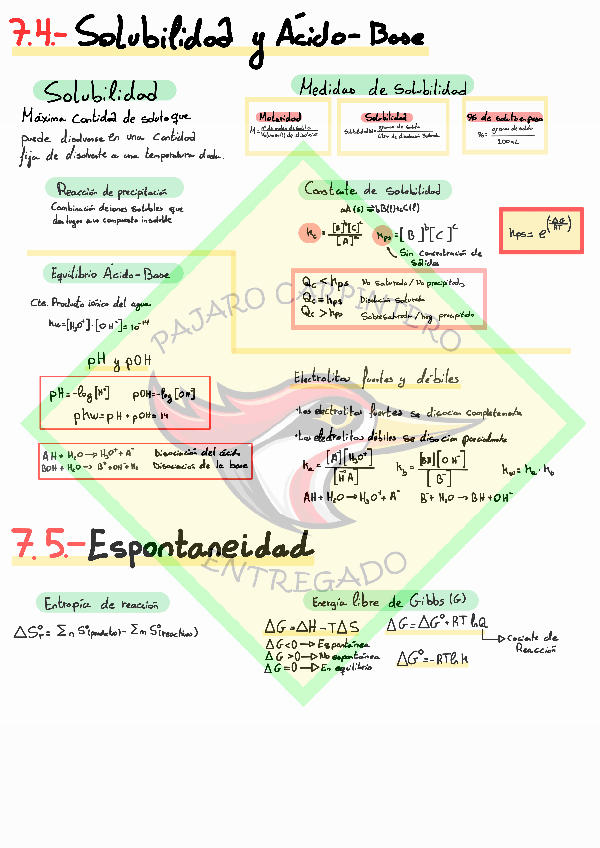 7.4.- Solubilidad y Ácido-Base
Solubilidad
Máxima cantidad de soluto que
puede disolverse en una cantidad
fija de disolvente a una temperatura dada.
Medidas de Solubilidad
Molaridad
M = nº de moles de soluto
Solubilidad
Solubilidad = gramos de soluto
% de soluto en peso
% = gramos de soluto
100 mL
Reacción de precipitación
Combinación de iones solubles que
da lugar a un compuesto insoluble
Constante de solubilidad
aA (s) ⇌ bB(l)+cC(l)
Kc = [B]^b[C]^c / [A]^a
Kps = [B]^b[C]^c
Sin concentración de
sólidos
Kps = e^(-ΔG/RT)
Qc < Kps No saturada / No precipitado
Qc = Kps Disolución saturada
Qc > Kps Sobresaturada / hay precipitado
Equilibrio Ácido-Base
Cte. Producto iónico del agua
Kw=[H3O+]·[OH-]=10^-14
pH y pOH
pH=-log[H+] pOH=-log[OH]
pKw=pH+pOH=14
AH + H2O → H3O+ + A- Disociación del ácido
BOH + H2O → B+ + OH- + H2 Disociación de la base
Electrolitos fuertes y débiles
·Los electrolitos fuertes se disocian completamente
·Los electrolitos débiles se disocian parcialmente
Ka = [A][H3O+] / [HA] Kb = [BH][OH-] / [B-] Kw = Ka · Kb
AH + H2O → H3O+ + A- B- + H2O → BH + OH-
PAJARO CARPINTERO
ENTREGADO
7.5.- Espontaneidad
Entropía de reacción
ΔS°r = Σn S°(producto) - Σm S°(reactivo)
Energía libre de Gibbs (G)
ΔG = ΔH - TΔS
ΔG<0 → Espontánea
ΔG>0 → No espontánea
ΔG=0 → En equilibrio
ΔG = ΔG° + RT lnQ
Cociente de
Reacción
ΔG° = -RT ln K